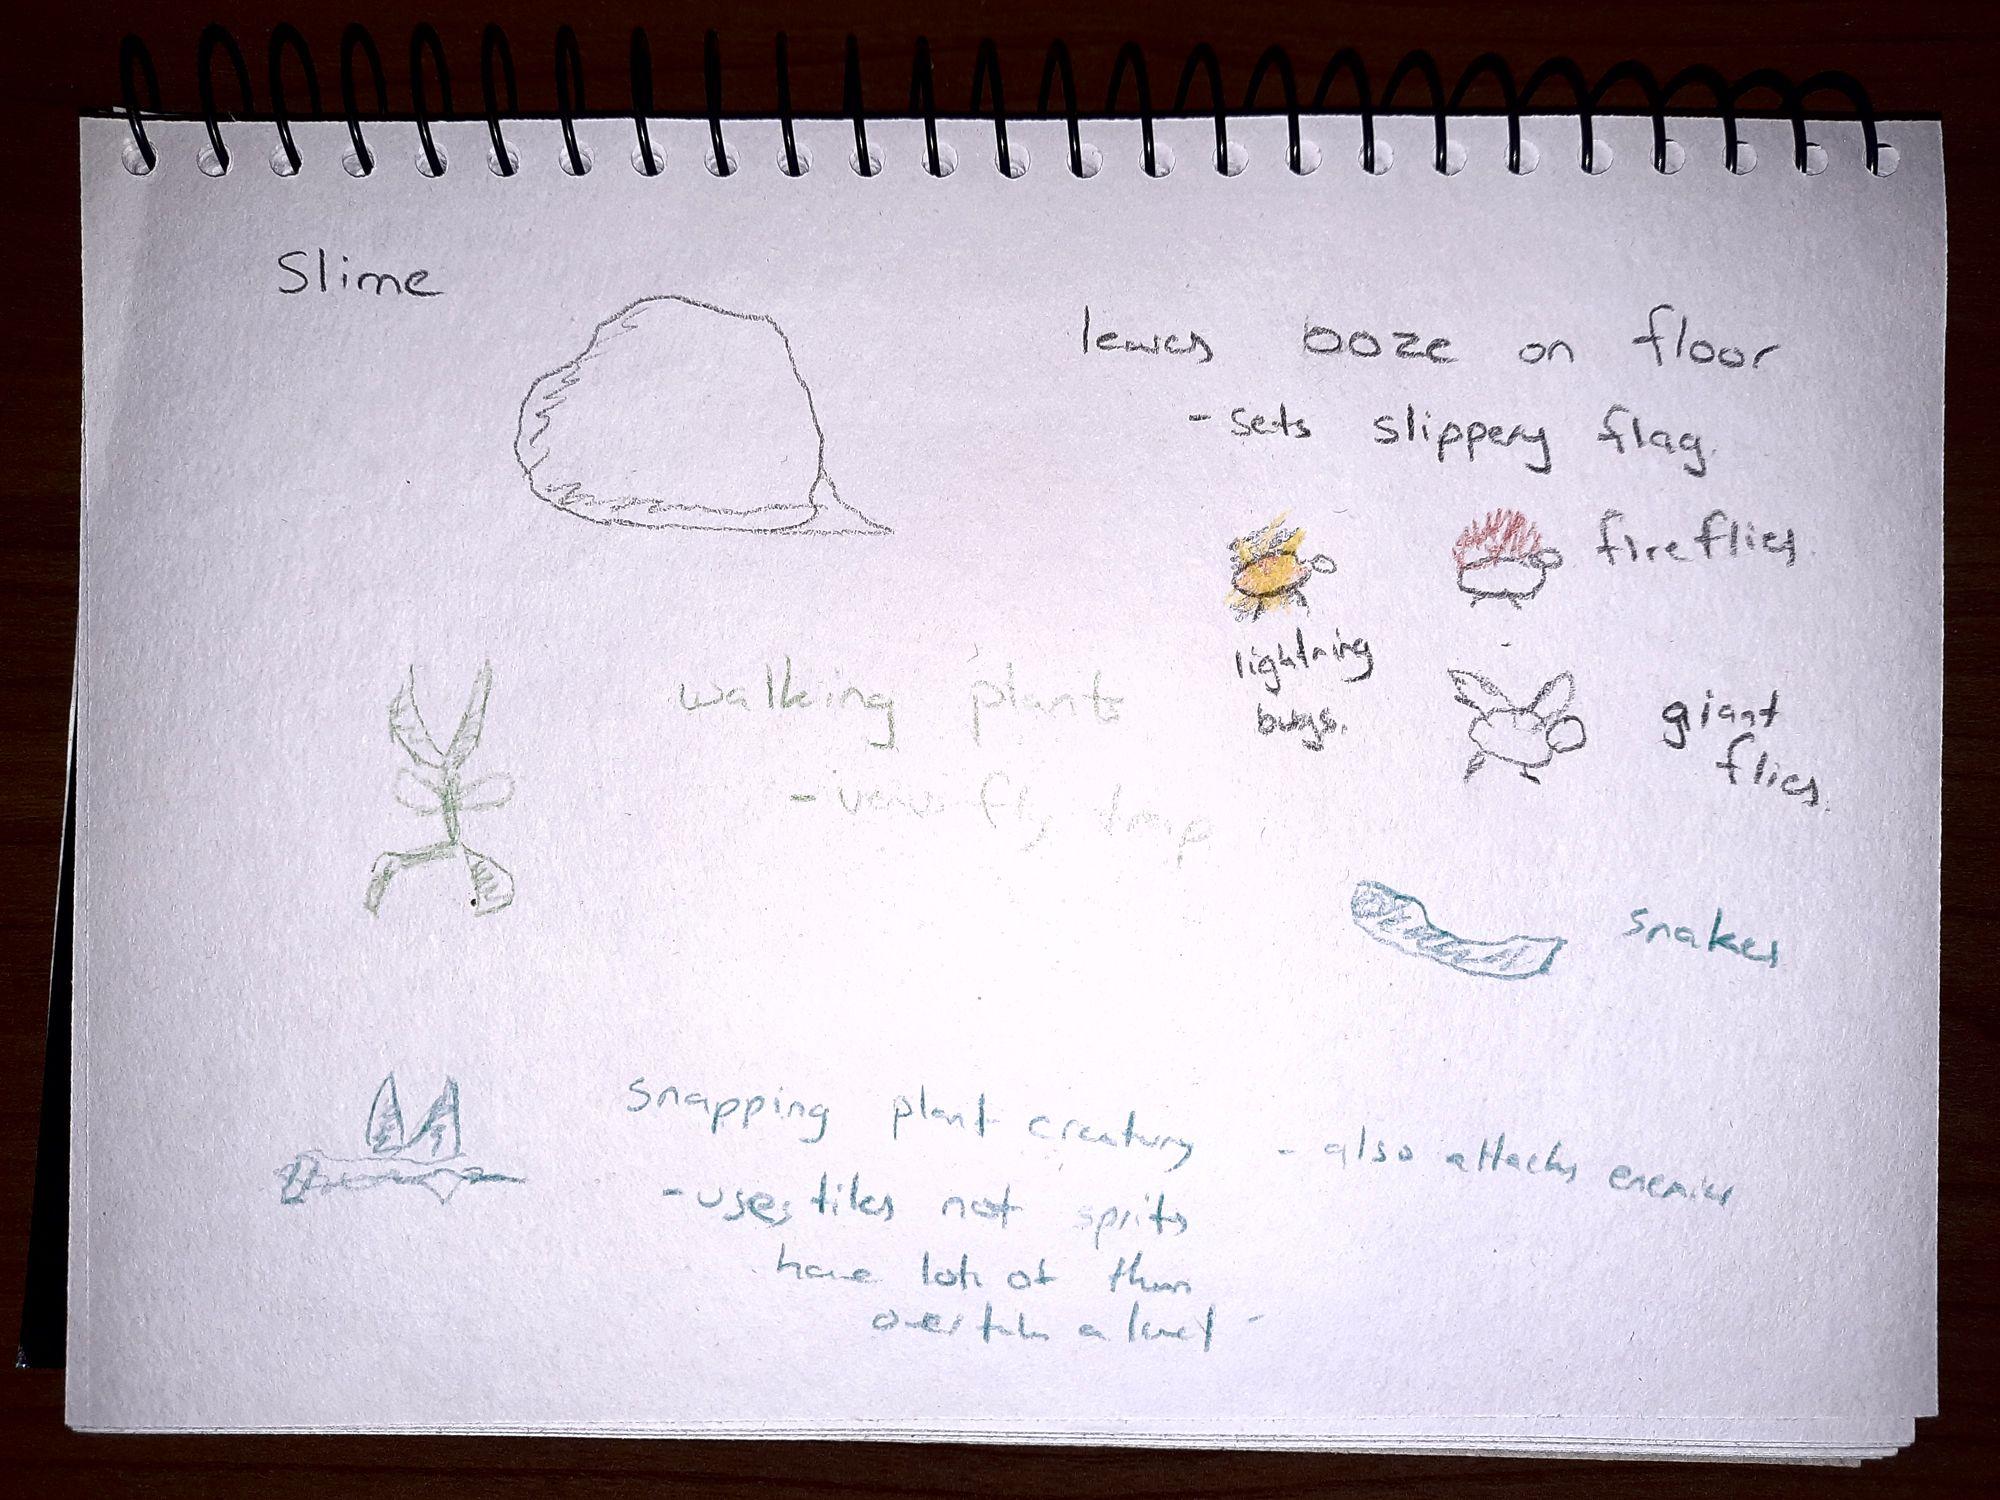 Slime
leaves ooze on floor
- sets slippery flag.
fireflies.
lightning
bugs.
giant
flies.
walking plant
- venus fly trap
snakes
snapping plant creatures
- also attacks enemies
- uses tiles not sprits
have lots of them
overtake a level -